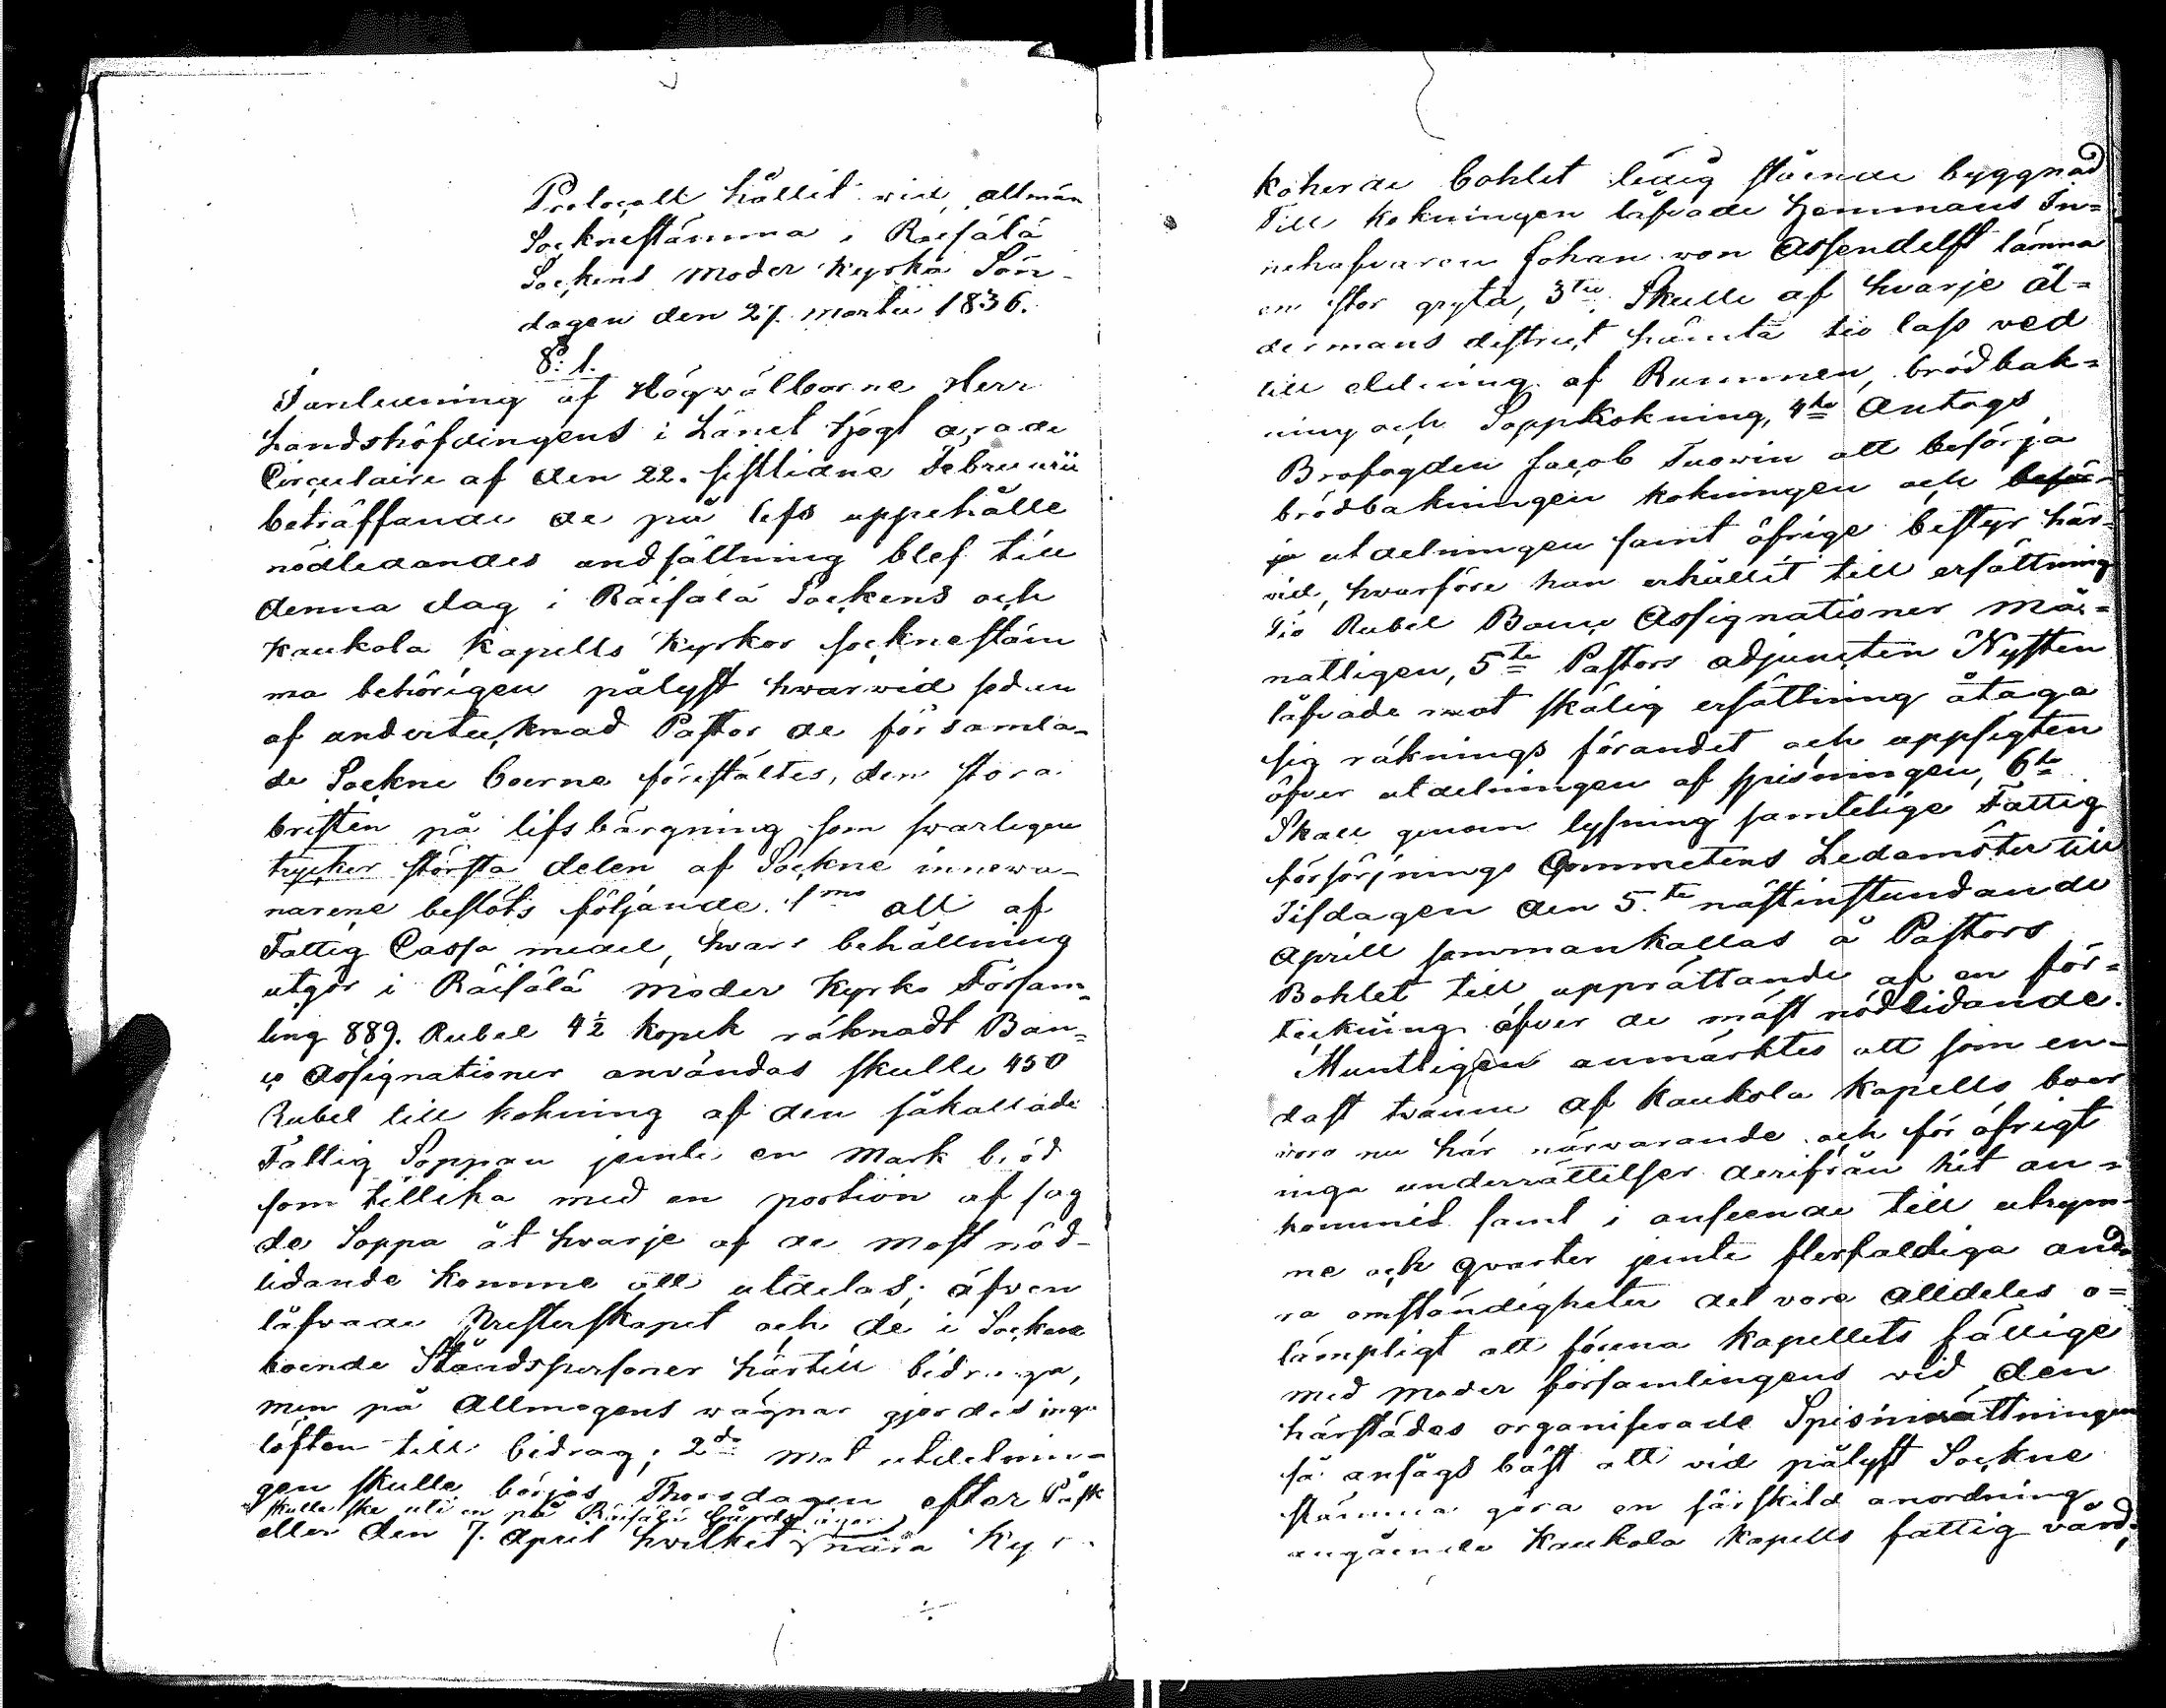 Protocoll hållit vid allmän
Socknestämma i Räisälä
Sockens Moder Kyrka Sön-
dagen den 27. Martii 1836.
§. 1.
I anledning af Högwälborne Herr
Landshöfdingens i Länet Högt ärade
Circulaire af den 22. sistlidne Februarii
beträffande de på lifs uppehälle
nödlidandes undsättning blef till
denna dag i Räisälä Sockens och
Kaukola Kapells Kyrkor socknestäm
ma behörigen pålyst hwarwid sedan
af undertecknad Pastor de församla-
de Sockne boerne föreställtes, den stora
bristen på lifsbärgning som swarligen
trycker största delen af Sockne innewå-
narene beslöts följande. 1mo att af
Fattig Cassa medel, hvars behållning
utgör i Räisälä Moder Kyrko Försam-
ling 889. Rubel 4½ kopek räknadt Ban-
co Assignationer användas skulle 450
Rubel till kokning af den såkallade
Fattig Soppan jemte en Mark bröd
som tillika med en portion af sag
de Soppa åt hwarje af de mäst nöd-
lidande komme att utdelas; äfven
låfvade Presterskapet och de i Socknen
boende Ståndspersoner härtill bidraga,
men på Allmogens wägnar gjordes inga
löften till bidrag; 2do Mat utdelnin-
gen skulle börjas Thorsdagen efter Påsk
skulle ske uti en på Räisälä
eller den 7. April hvilket nära Kyr
koherde bohlet ledig stående byggnad
Till kokningen låfvade Hemmans In-
nehafvaren Johan von Assendelft lämna
en stor gryta, 3tio Skulle af hvarje Ål-
dermans district hämta tio lass ved
till eldning af Rummen, brödbak-
ning och Soppkokning, 4to Antogs
Brofogden Jacob Tuowin att besörja
brödbakningen kokningen och besör-
ja utdelningen samt öfrige bestyr här-
vid, hvarföre han erhållit till ersättning
Tio Rubel Banco Assignationer må-
natligen, 5te Pastors adjuncten Nysten
låfvade mot skälig ersättning åtaga
sig räknings förandet och uppsigten
öfver utdelningen af spisningen, 6to
Skall genom lysning samtelige Fattig
försörjnings Commetens Ledamöter till
Tisdagen den 5.te nästinstundande
Aprill sammankallas å Pastors
Bohlet till upprättande af en för-
teckning öfver de mäst nödlidande.
Muntligen anmärktes att som en-
dast tvänne af Kaukola Kapells boer
voro nu här närvarande och för öfrigt
inga underrättelser derifrån hit an-
kommit samt i anseende till utrym-
me och qvarter jemte flerfaldiga and-
ra omständigheter det vore alldeles o-
lämpligt att förena Kapellets fattige
med Moder församlingens vid den
härstädes organiserade Spisinrättningen
så ansågs bäst att vid pålyst Sockne
stämma göra en särskild anordning
angående Kaukola Kapells fattig vård,